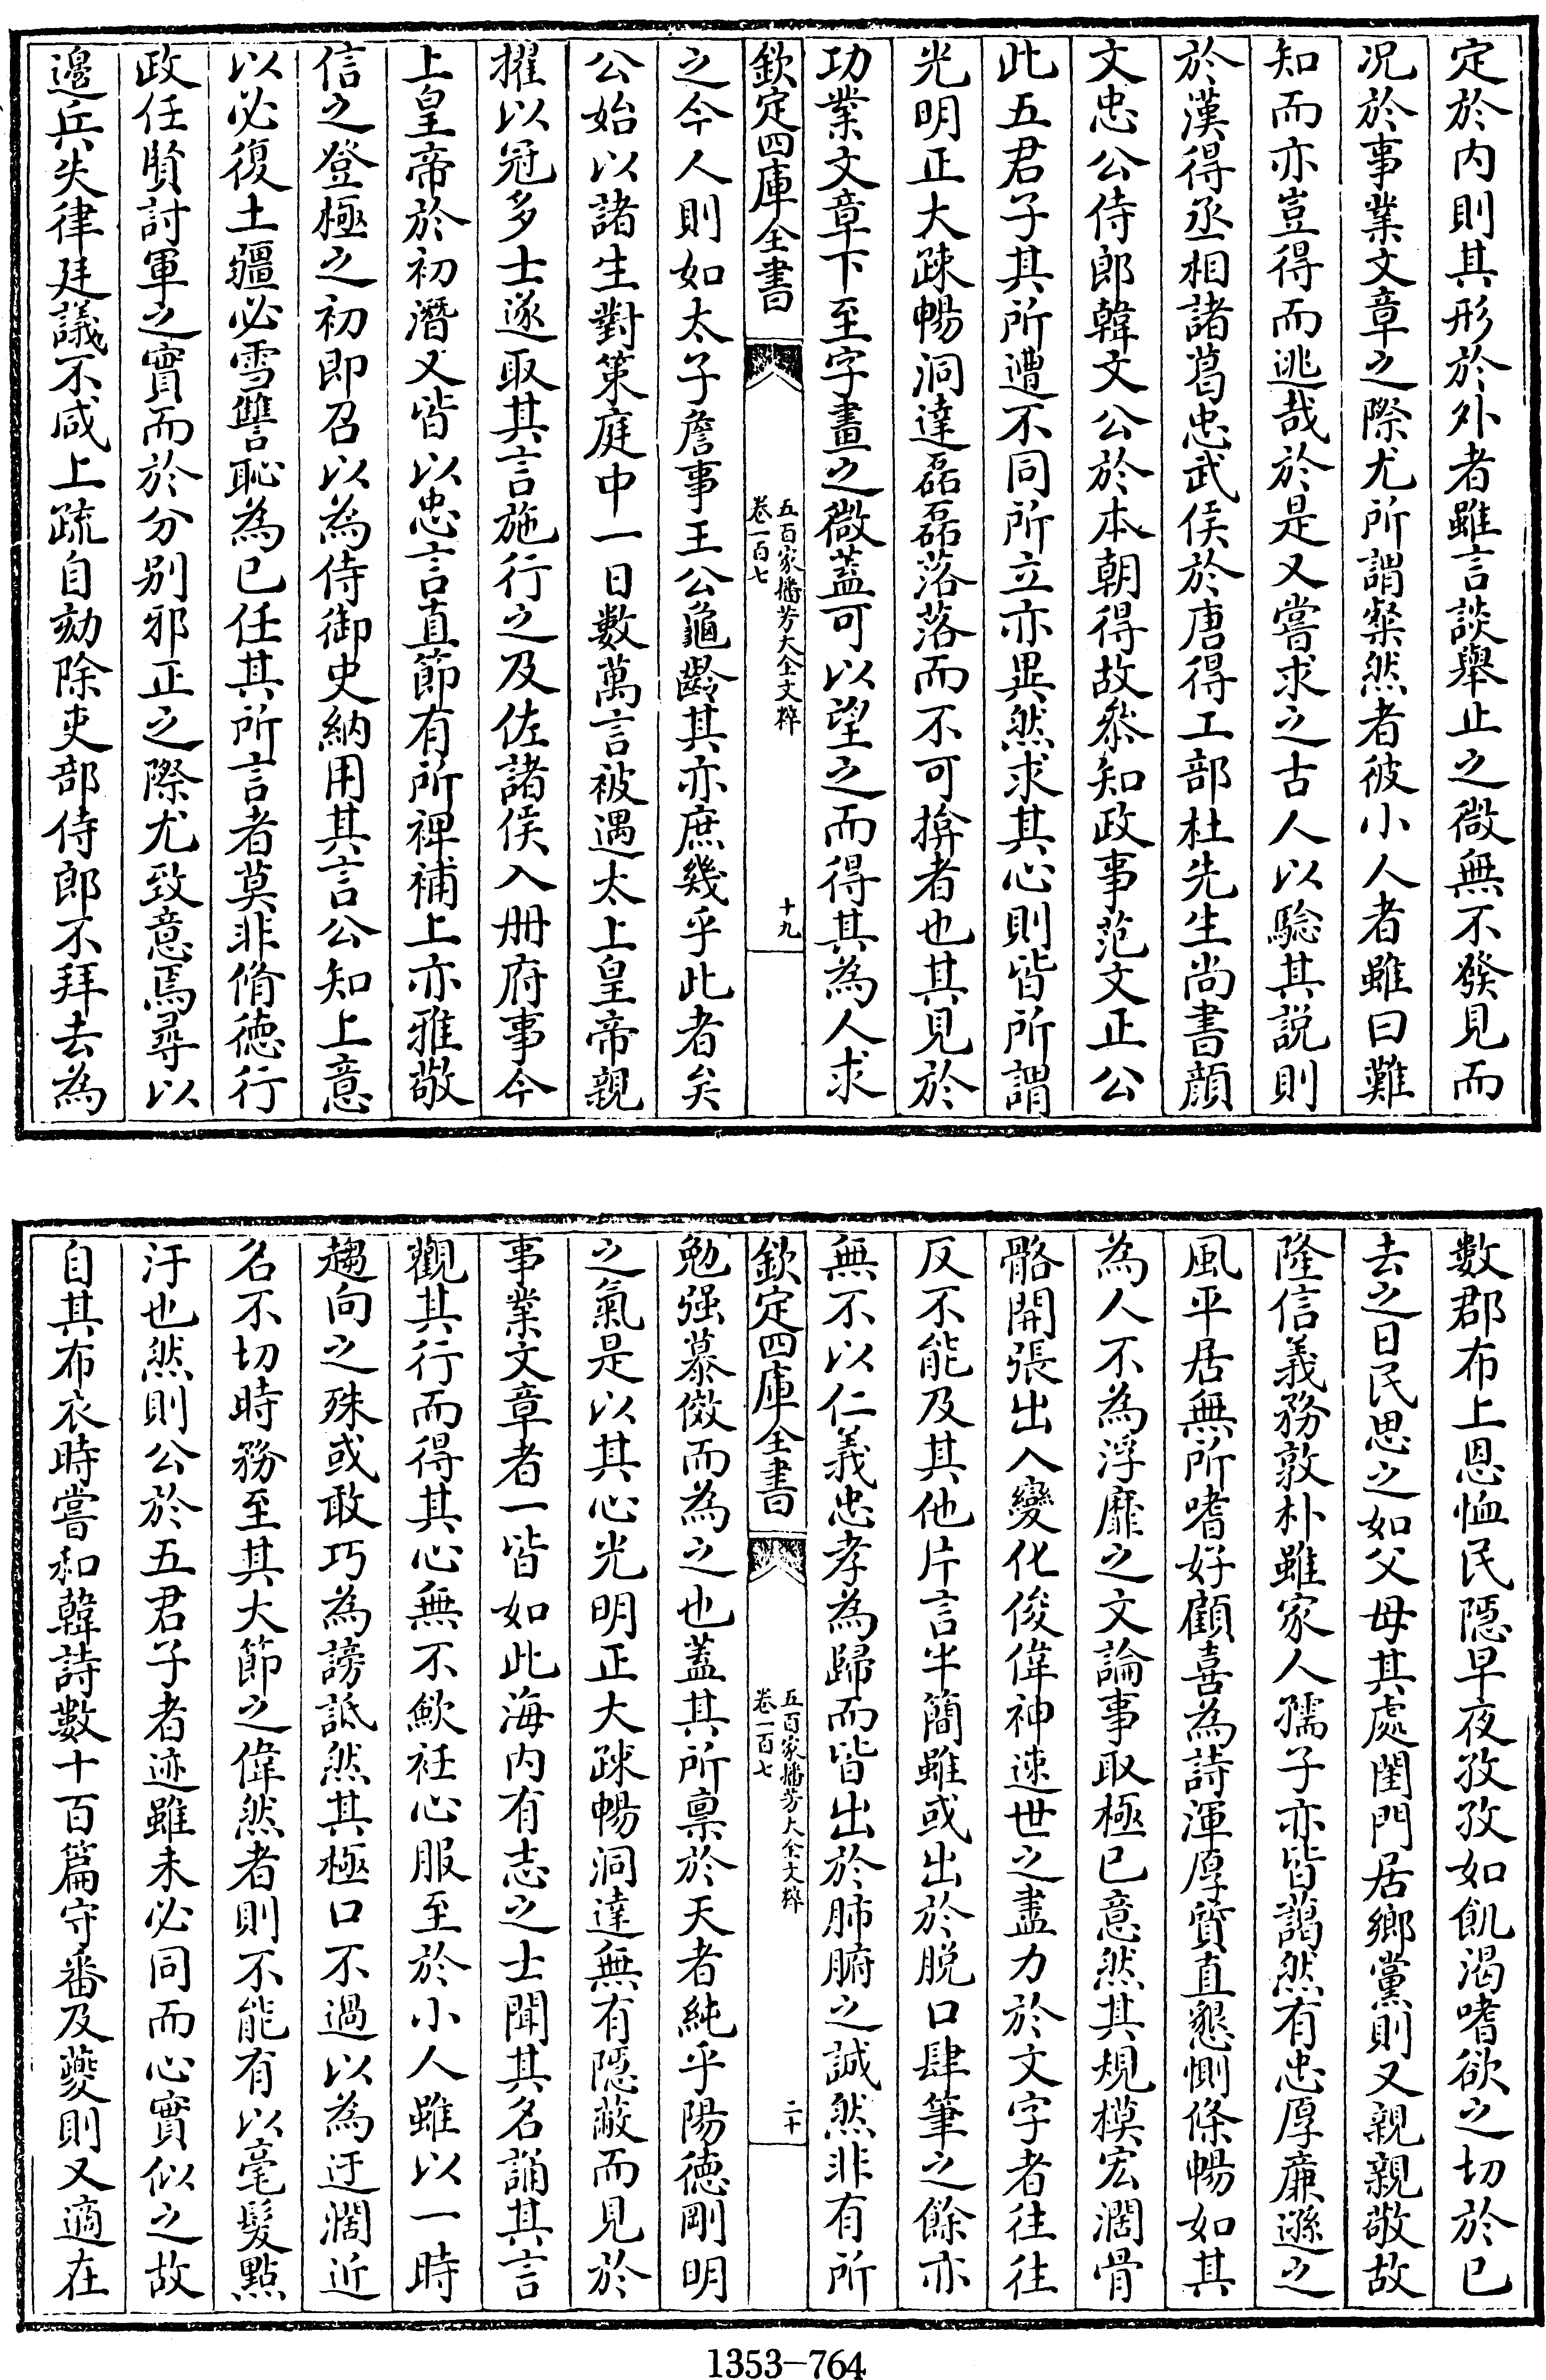 定於内則其形於外者雖言談舉止之微無不發見而
况於事業文章之際尤所謂粲然者彼小人者雖曰難
知而亦豈得而逃哉於是又嘗求之古人以驗其説則
於漢得丞相諸葛忠武侯於唐得工部杜先生尚書顔
文忠公侍郎韓文公於本朝得故參知政事范文正公
此五君子其所遭不同所立亦異然求其心則皆所謂
光明正大疎暢洞達磊磊落落而不可揜者也其見於
功業文章下至字畫之微蓋可以望之而得其為人求
欽定四庫全書
五百家播芳大全文粹
卷一百七
十九
之今人則如太子詹事王公龜齡其亦庶幾乎此者矣
公始以諸生對策庭中一日數萬言被遇太上皇帝親
擢以冠多士遂取其言施行之及佐諸侯入册府事今
上皇帝於初潛又皆以忠言直節有所裨補上亦雅敬
信之登極之初即召以為侍御史納用其言公知上意
以必復土疆必雪讐恥為己任其所言者莫非脩德行
政任賢討軍之實而於分别邪正之際尤致意焉尋以
邊兵失律廷議不咸上疏自劾除吏部侍郎不拜去為
數郡布上恩恤民隱早夜孜孜如飢渴嗜欲之切於已
去之日民思之如父母其處閨門居鄉黨則又親親敬故
隆信義務敦朴雖家人孺子亦皆藹然有忠厚廉遜之
風平居無所嗜好顧喜為詩渾厚質直懇惻條暢如其
為人不為浮靡之文論事取極已意然其規模宏濶骨
骼開張出入變化俊偉神速世之盡力於文字者往往
反不能及其他片言半簡雖或出於脱口肆筆之餘亦
無不以仁義忠孝為歸而皆出於肺腑之誠然非有所
欽定四庫全書
五百家播芳大全文粹
卷一百七
二十
勉强慕傚而為之也蓋其所禀於天者純乎陽德剛明
之氣是以其心光明正大疎暢洞達無有隱蔽而見於
事業文章者一皆如此海内有志之士聞其名誦其言
觀其行而得其心無不歛衽心服至於小人雖以一時
趨向之殊或敢巧為謗詆然其極口不過以為迂濶近
名不切時務至其大節之偉然者則不能有以毫髮點
汙也然則公於五君子者迹雖未必同而心實似之故
自其布衣時嘗和韓詩數十百篇守番及夔則又適在
1353-764